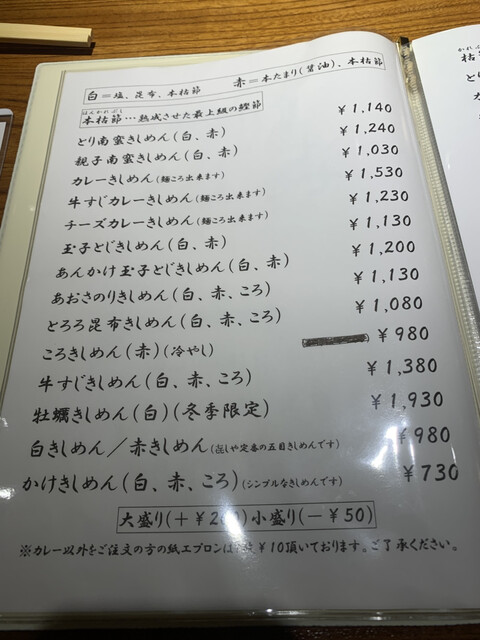 白=塩、昆布、本枯節　赤=本たまり(醤油)、本枯節
ほんかれぶし
本枯節…熟成させた最上級の鰹節
とり南蛮きしめん(白、赤) ¥1,140
親子南蛮きしめん(白、赤) ¥1,240
カレーきしめん(麺ころ出来ます) ¥1,030
牛すじカレーきしめん(麺ころ出来ます) ¥1,530
チーズカレーきしめん(麺ころ出来ます) ¥1,230
玉子とじきしめん(白、赤) ¥1,130
あんかけ玉子とじきしめん(白、赤) ¥1,200
あおさのりきしめん(白、赤、ころ) ¥1,130
とろろ昆布きしめん(白、赤、ころ) ¥1,080
ころきしめん(赤)(冷やし) ¥980
牛すじきしめん(白、赤、ころ) ¥1,380
牡蠣きしめん(白)(冬季限定) ¥1,930
白きしめん/赤きしめん(出しや定番の五目きしめんです) ¥980
かけきしめん(白、赤、ころ)(シンプルなきしめんです) ¥730
大盛り(+¥2 小盛り(-¥50)
※カレー以外をご注文の方の紙エプロンは ¥10頂いております。ご了承ください。
かれぶし
枯節
とり